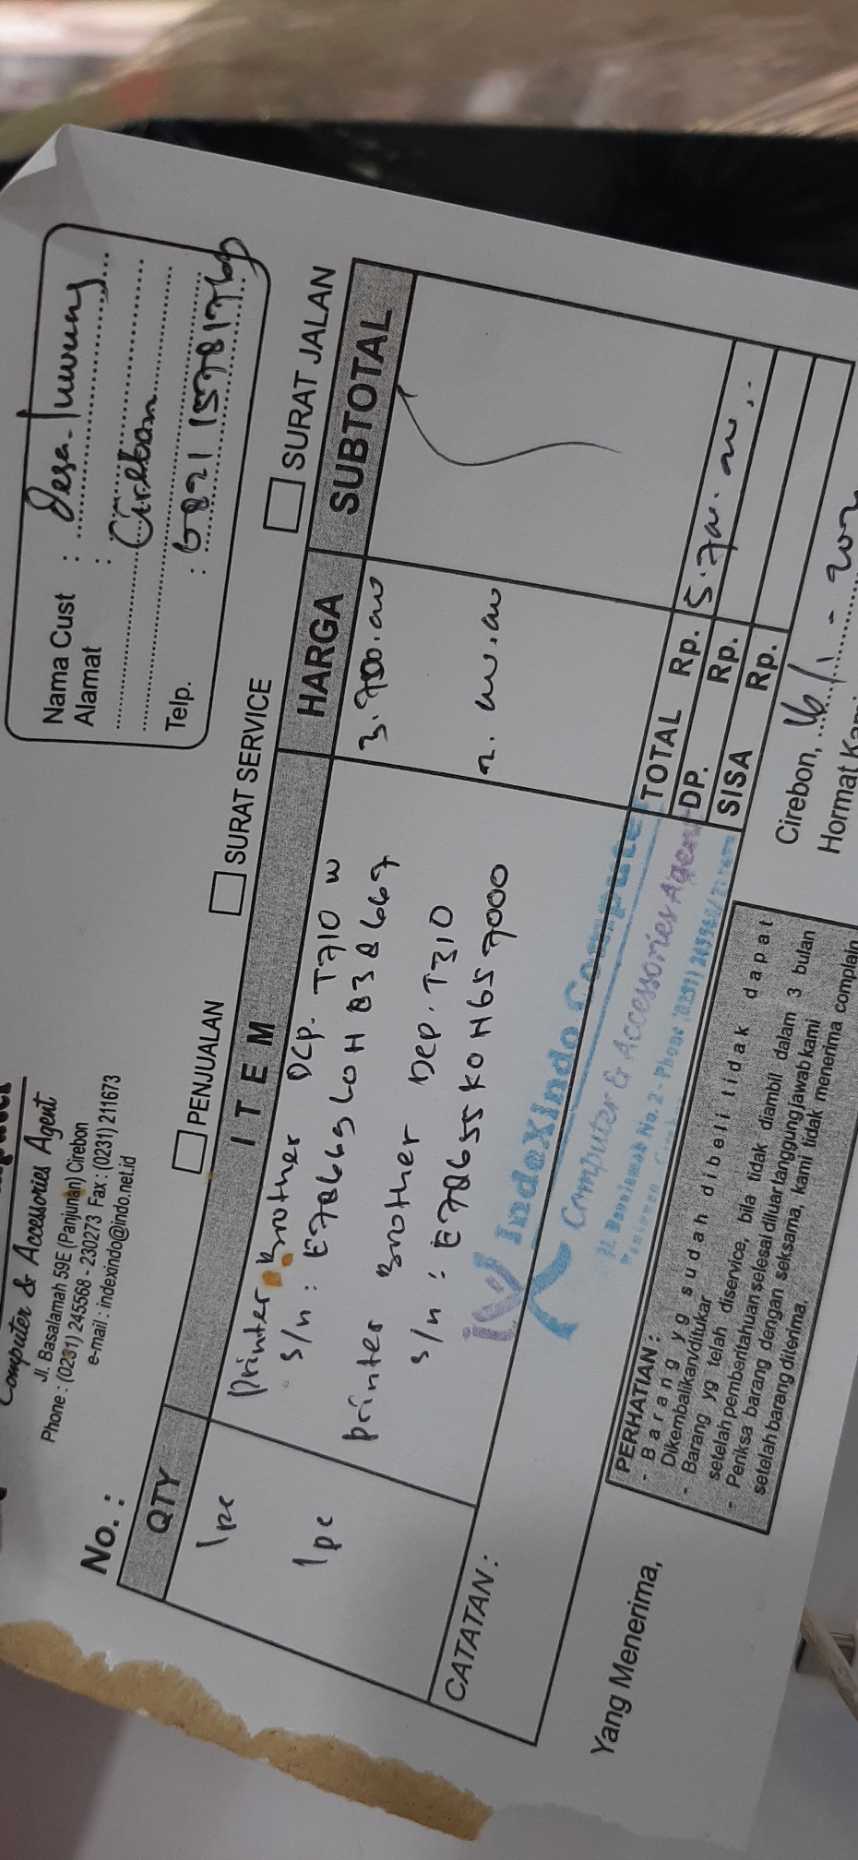 Computer & Accessories Agent
Jl. Basalamah 59E (Panjunan) Cirebon
Phone : (0231) 245568 - 230273 Fax : (0231) 211673
e-mail : indexindo@indo.net.id
Nama Cust : Desa
Alamat : Cirebon
Telp. :
No. :
PENJUALAN SURAT SERVICE SURAT JALAN
QTY ITEM HARGA SUBTOTAL
1 pc Printer Brother DCP. T710 W 3.700.000
S/n :
1 pc Printer Brother DCP. T310
S/n : E78655K0H657000
CATATAN :
IndeXIndo Computer
Computer & Accessories Agent
TOTAL Rp.
DP. Rp.
SISA Rp.
PERHATIAN :
- Barang yg sudah dibeli tidak dapat
Dikembalikan/ditukar
- Barang yg telah diservice, bila tidak diambil dalam 3 bulan
setelah pemberitahuan selesai diluar tanggung jawab kami
- Periksa barang dengan seksama, kami tidak menerima complain
setelah barang diterima.
Yang Menerima,
Cirebon, 16/1 -
Hormat